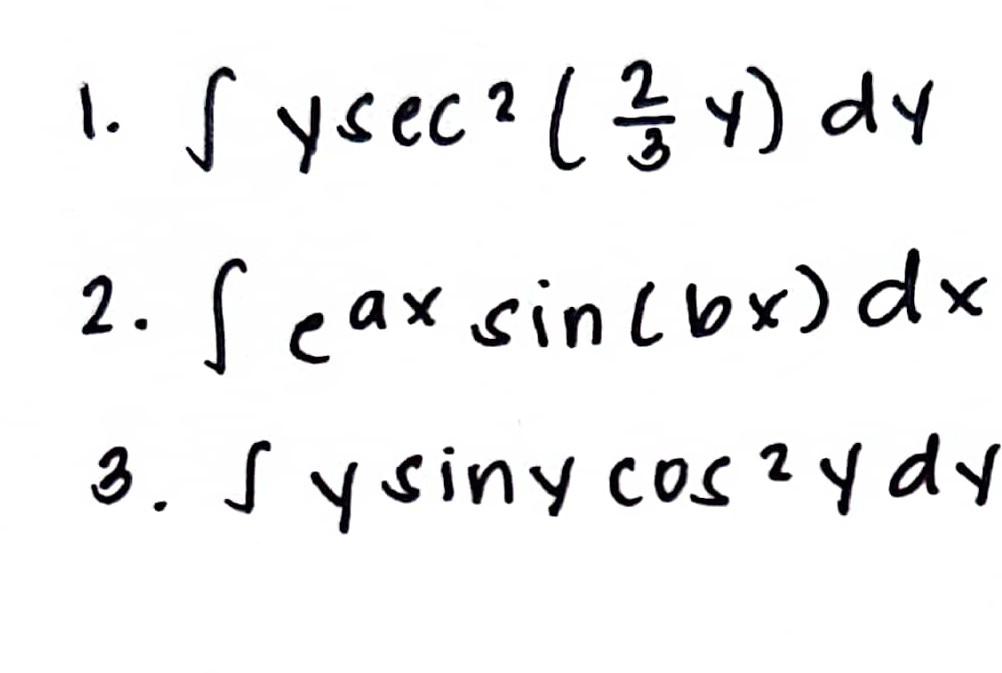 1. ∫ y sec² (⅔ y) dy
2. ∫ e^{ax} sin(bx) dx
3. ∫ y sin y cos² y dy